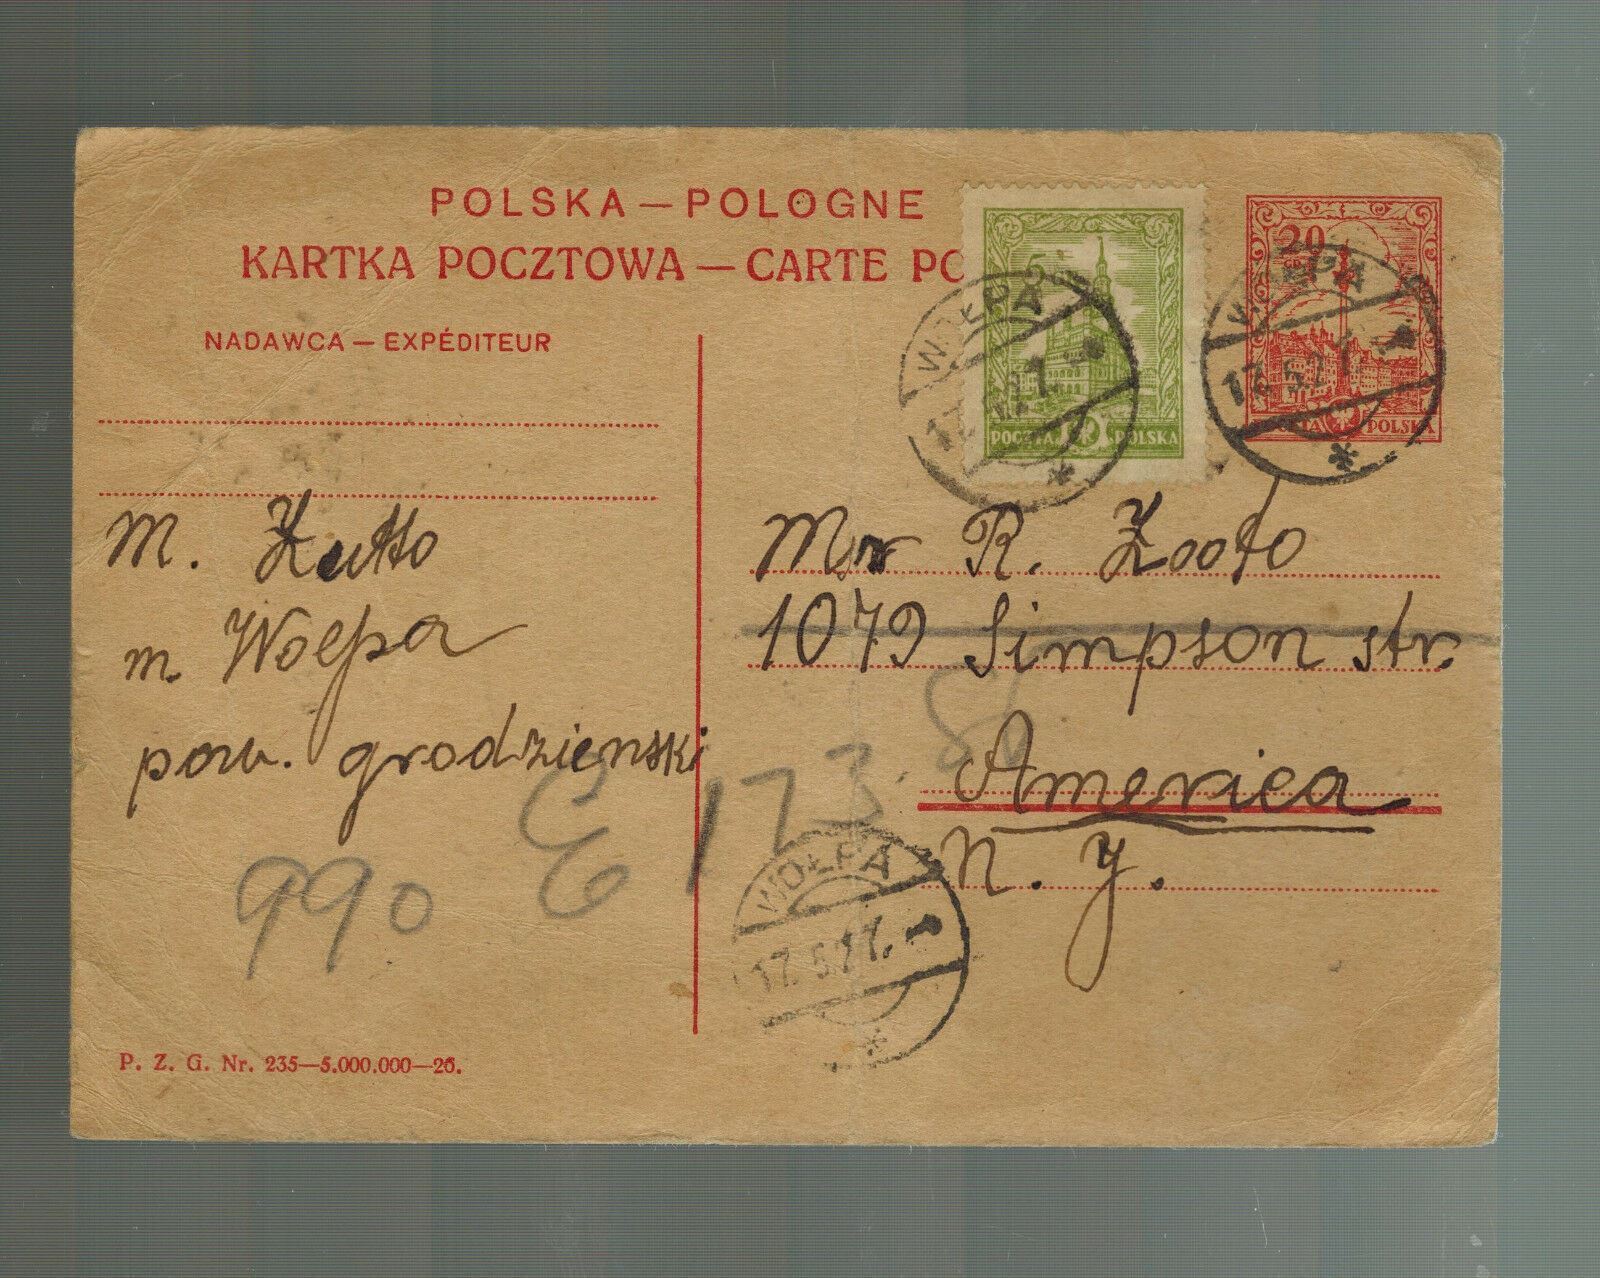 POLSKA — POLOGNE
KARTKA POCZTOWA — CARTE PO
NADAWCA — EXPÉDITEUR
5
POCZTA POLSKA
20
GR
POCZTA POLSKA
WOŁPA
17. 5. 27.
WOŁPA
17. 5. 27.
M. Zutto
m. Wołpa
pow. grodzienski
Mr R. Zooto
1079 Simpson str.
America
N. Y.
E 173
990
WOŁPA
17. 5. 27.
P. Z. G. Nr. 235—5.000.000—26.